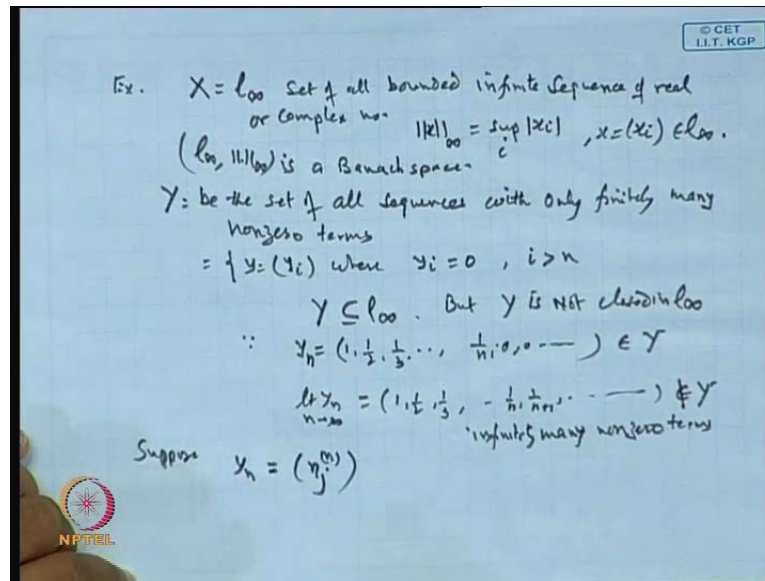 © CET
I.I.T. KGP
Ex. X = l∞ set of all bounded infinite sequence of real
or complex no. ||x||∞ = sup |xi| , x=(xi) ∈ l∞.
i
(l∞, ||.||∞) is a Banach space.
Y: be the set of all sequences with only finitely many
nonzero terms
= { y=(yi) where yi = 0 , i > n
Y ⊆ l∞ . But Y is Not closed in l∞
∵ yn = (1, 1/2, 1/3, .., 1/n, 0, 0 - - -) ∈ Y
lt yn = (1, 1/2, 1/3, - 1/n, 1/n+1, . - - -) ∉ Y
n→∞
infinitely many nonzero terms
Suppose yn = (ηj^(n))
NPTEL